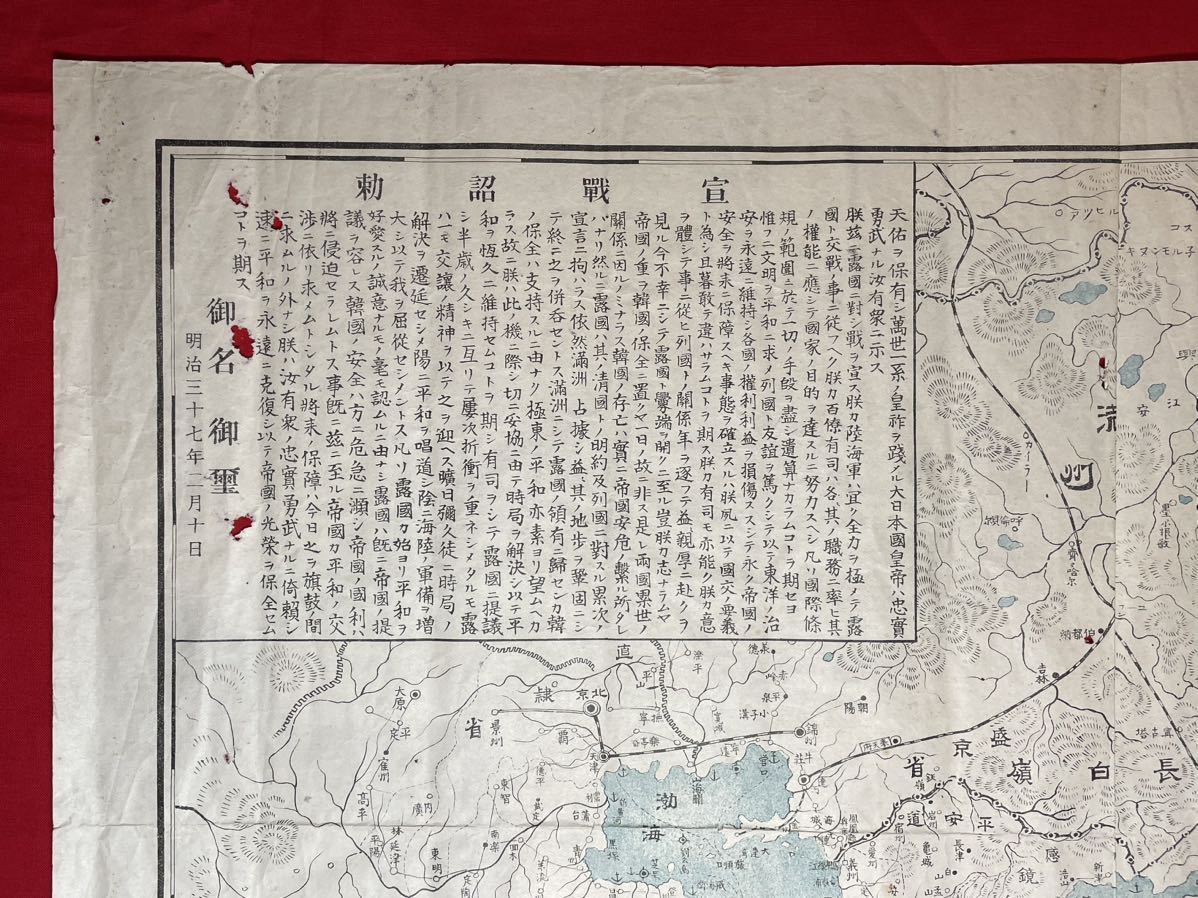 宣戰詔勅
天佑ヲ保有シ萬世一系ノ皇祚ヲ踐ル大日本國皇帝ハ忠實
勇武ナル汝有衆ニ示ス
朕玆ニ露國ニ對シ戰ヲ宣ス朕カ陸海軍ハ宜ク全力ヲ極ノテ露
國ト交戰ノ事ニ從フヘク朕カ百僚有司ハ各其ノ職務ニ率ヒ其
ノ權能ニ應シテ國家ノ目的ヲ達スルニ努力スヘシ凡ソ國際條
規ノ範圍ニ於テ一切ノ手段ヲ盡シ遺算ナカラムコトヲ期セヨ
惟フニ文明ヲ平和ニ求メ列國ト友誼ヲ篤クシテ以テ東洋ノ治
安ヲ永遠ニ維持シ各國ノ權利利益ヲ損傷スシテ永ク帝國ノ
安全ヲ將来ニ保障スヘキ事態ヲ確立スルハ朕夙ニ以テ國交ノ要義
ト為シ旦暮敢テ違ハサラムコトヲ期ス朕カ有司モ亦能ク朕カ意
ヲ體シテ事ニ從ヒ列國トノ關係年ヲ逐フテ益親厚ニ赴クヲ
見ル今不幸ニシテ露國ト釁端ヲ開クニ至ル豈朕カ志ナラムヤ
帝國ノ重ヲ韓國ノ保全ニ置クヤ一日ノ故ニ非ス是レ兩國累世ノ
關係ニ因ルノミナラス韓國ノ存亡ハ實ニ帝國安危ノ繫ル所タレ
バナリ然ルニ露國ハ其ノ清國トノ明約及列國ニ對スル累次ノ
宣言ニ拘ハラス依然滿洲ニ占據シ益其ノ地歩ヲ鞏固ニシ
テ終ニ之ヲ併呑セントス滿洲ニシテ露國ノ領有ニ歸センカ韓
ノ保全ハ支持スルニ由ナク極東ノ平和亦素ヨリ望ムヘカ
ラス故ニ朕ハ此ノ機ニ際シ切ニ妥協ニ由テ時局ヲ解決シ以テ平
和ヲ恆久ニ維持セムコトヲ期シ有司ヲシテ露國ニ提議
シ半歳ノ久シキニ亙リテ屢次折衝ヲ重ネシメタルモ露
ハ一モ交讓ノ精神ヲ以テ之ヲ迎ヘス曠日彌久徒ニ時局ノ
解決ヲ遷延セシメ陽ニ平和ヲ唱道シ陰ニ海陸ノ軍備ヲ増
大シ以テ我ヲ屈從セシメントス凡ソ露國カ始ヨリ平和ヲ
好愛スルノ誠意ナルモノ毫モ認ムルニ由ナシ露國ハ既ニ帝國ノ提
議ヲ容レス韓國ノ安全ハ方ニ危急ニ瀕シ帝國ノ國利ハ
將ニ侵迫セラレムトス事既ニ茲ニ至ル帝國カ平和ノ交
渉ニ依リ求メムトシタル將来ノ保障ハ今日之ヲ旗鼓ノ間
ニ求ムルノ外ナシ朕ハ汝有衆ノ忠實勇武ナルニ倚賴シ
速ニ平和ヲ永遠ニ克復シ以テ帝國ノ光榮ヲ保全セム
コトヲ期ス
御名御璽
明治三十七年二月十日
滿
州
カイラー
齊々哈尔
伯都納
吉林
寧古塔
奉天府
盛京省
長白嶺
直隸省
北京
天津
大原
平定
景州
覇
德平
承德
赤峰
平泉
小子溝
朝陽
錦州
牛荘
営口
山海關
渤海
廣
高平
平陽
林
延津
東明
南楽
平安道
咸鏡
義州
長津